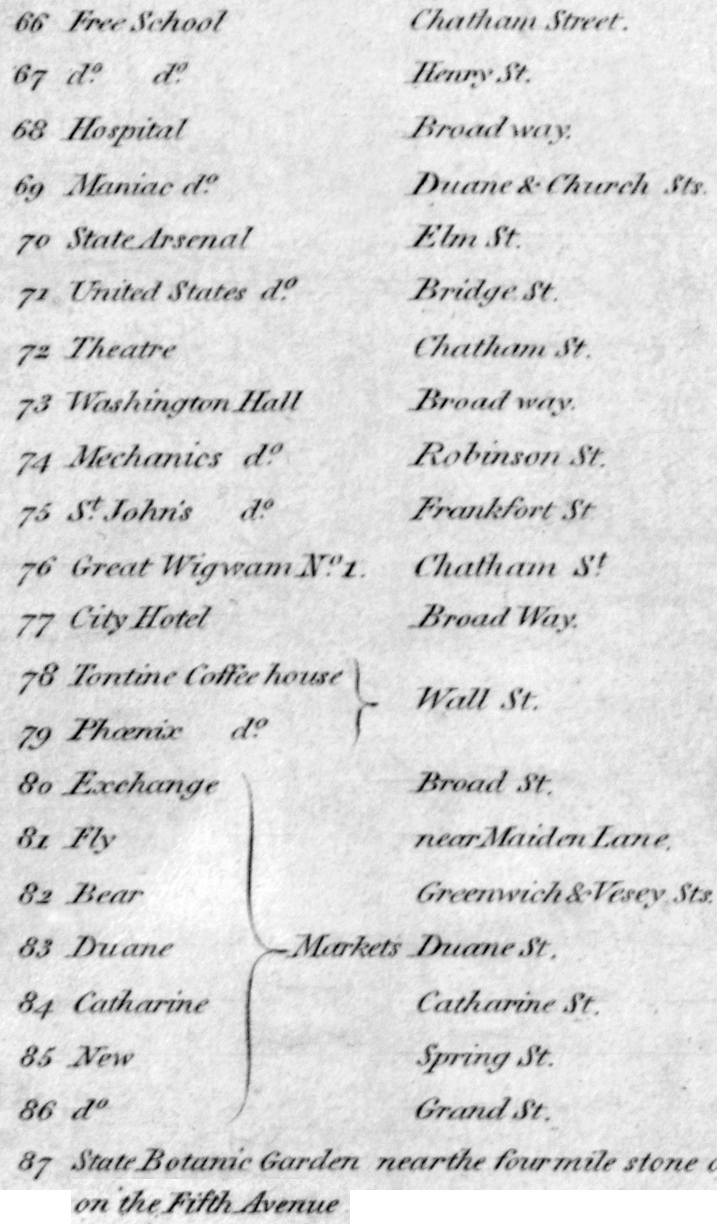 66 Free School Chatham Street.
67 dº dº Henry St.
68 Hospital Broad way.
69 Maniac dº Duane & Church Sts.
70 State Arsenal Elm St.
71 United States dº Bridge St.
72 Theatre Chatham St.
73 Washington Hall Broad way.
74 Mechanics dº Robinson St.
75 St John's dº Frankfort St
76 Great Wigwam Nº 1. Chatham St
77 City Hotel Broad Way.
78 Tontine Coffee house
Wall St.
79 Phœnix dº
80 Exchange Broad St.
81 Fly near Maiden Lane.
82 Bear Greenwich & Vesey Sts.
83 Duane Markets Duane St.
84 Catharine Catharine St.
85 New Spring St.
86 dº Grand St.
87 State Botanic Garden near the four mile stone
on the Fifth Avenue